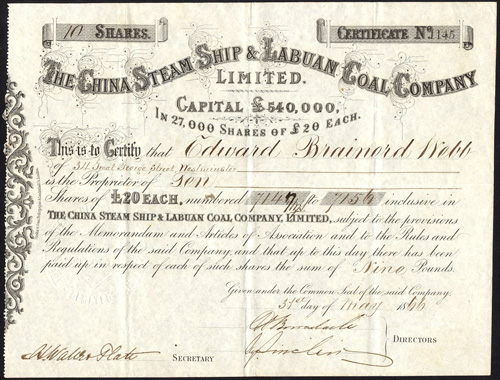 10 SHARES.
CERTIFICATE No 145
THE CHINA STEAM SHIP & LABUAN COAL COMPANY
LIMITED.
CAPITAL £540,000,
IN 27,000 SHARES OF £20 EACH.
This is to Certify that Edward Brainerd Webb
of 34 Great George Street Westminster
is the Proprietor of Ten
Shares of £20 EACH, numbered 7147 to 7156 inclusive in
THE CHINA STEAM SHIP & LABUAN COAL COMPANY, LIMITED, subject to the provisions
of the Memorandum and Articles of Association and to the Rules and
Regulations of the said Company, and that up to this day there has been
paid up in respect of each of such shares the sum of Nine Pounds.
Given under the Common Seal of the said Company.
31st day of May 1866
DIRECTORS
SECRETARY